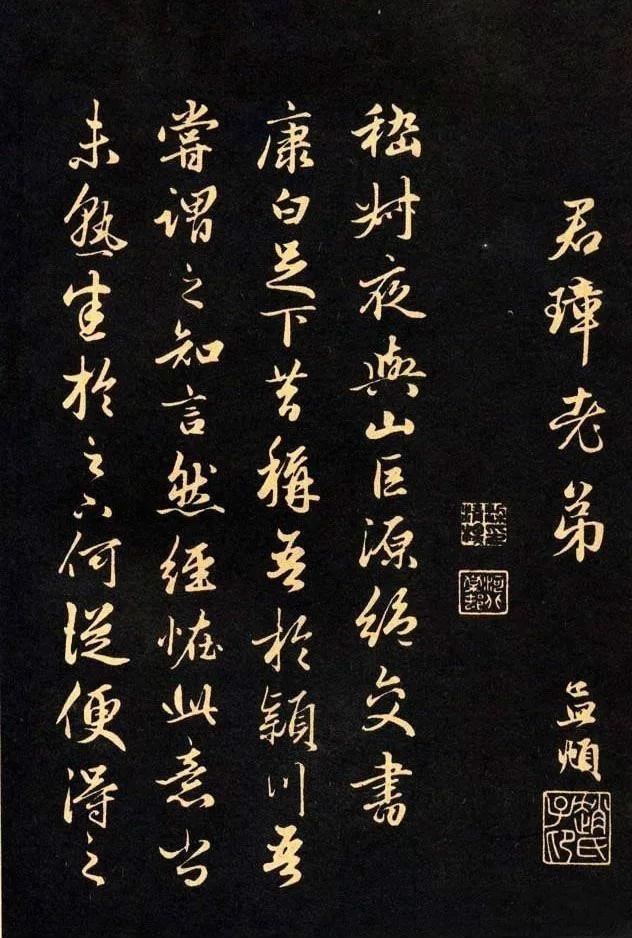 君璋老弟
孟頫
趙氏子昂
嵇叔夜與山巨源絕交書
康白足下昔稱吾於潁川吾
嘗謂之知言然經怪此意尚
未熟悉於足下何從便得之